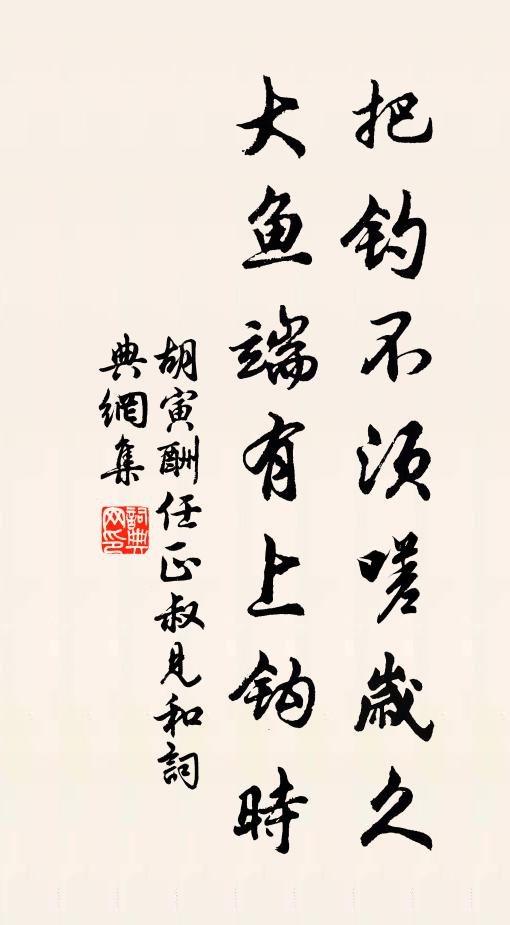 把钓不须嗟歳久
大鱼端有上钩時
胡寅酬任正叔見和詞
典網集
詞典网印